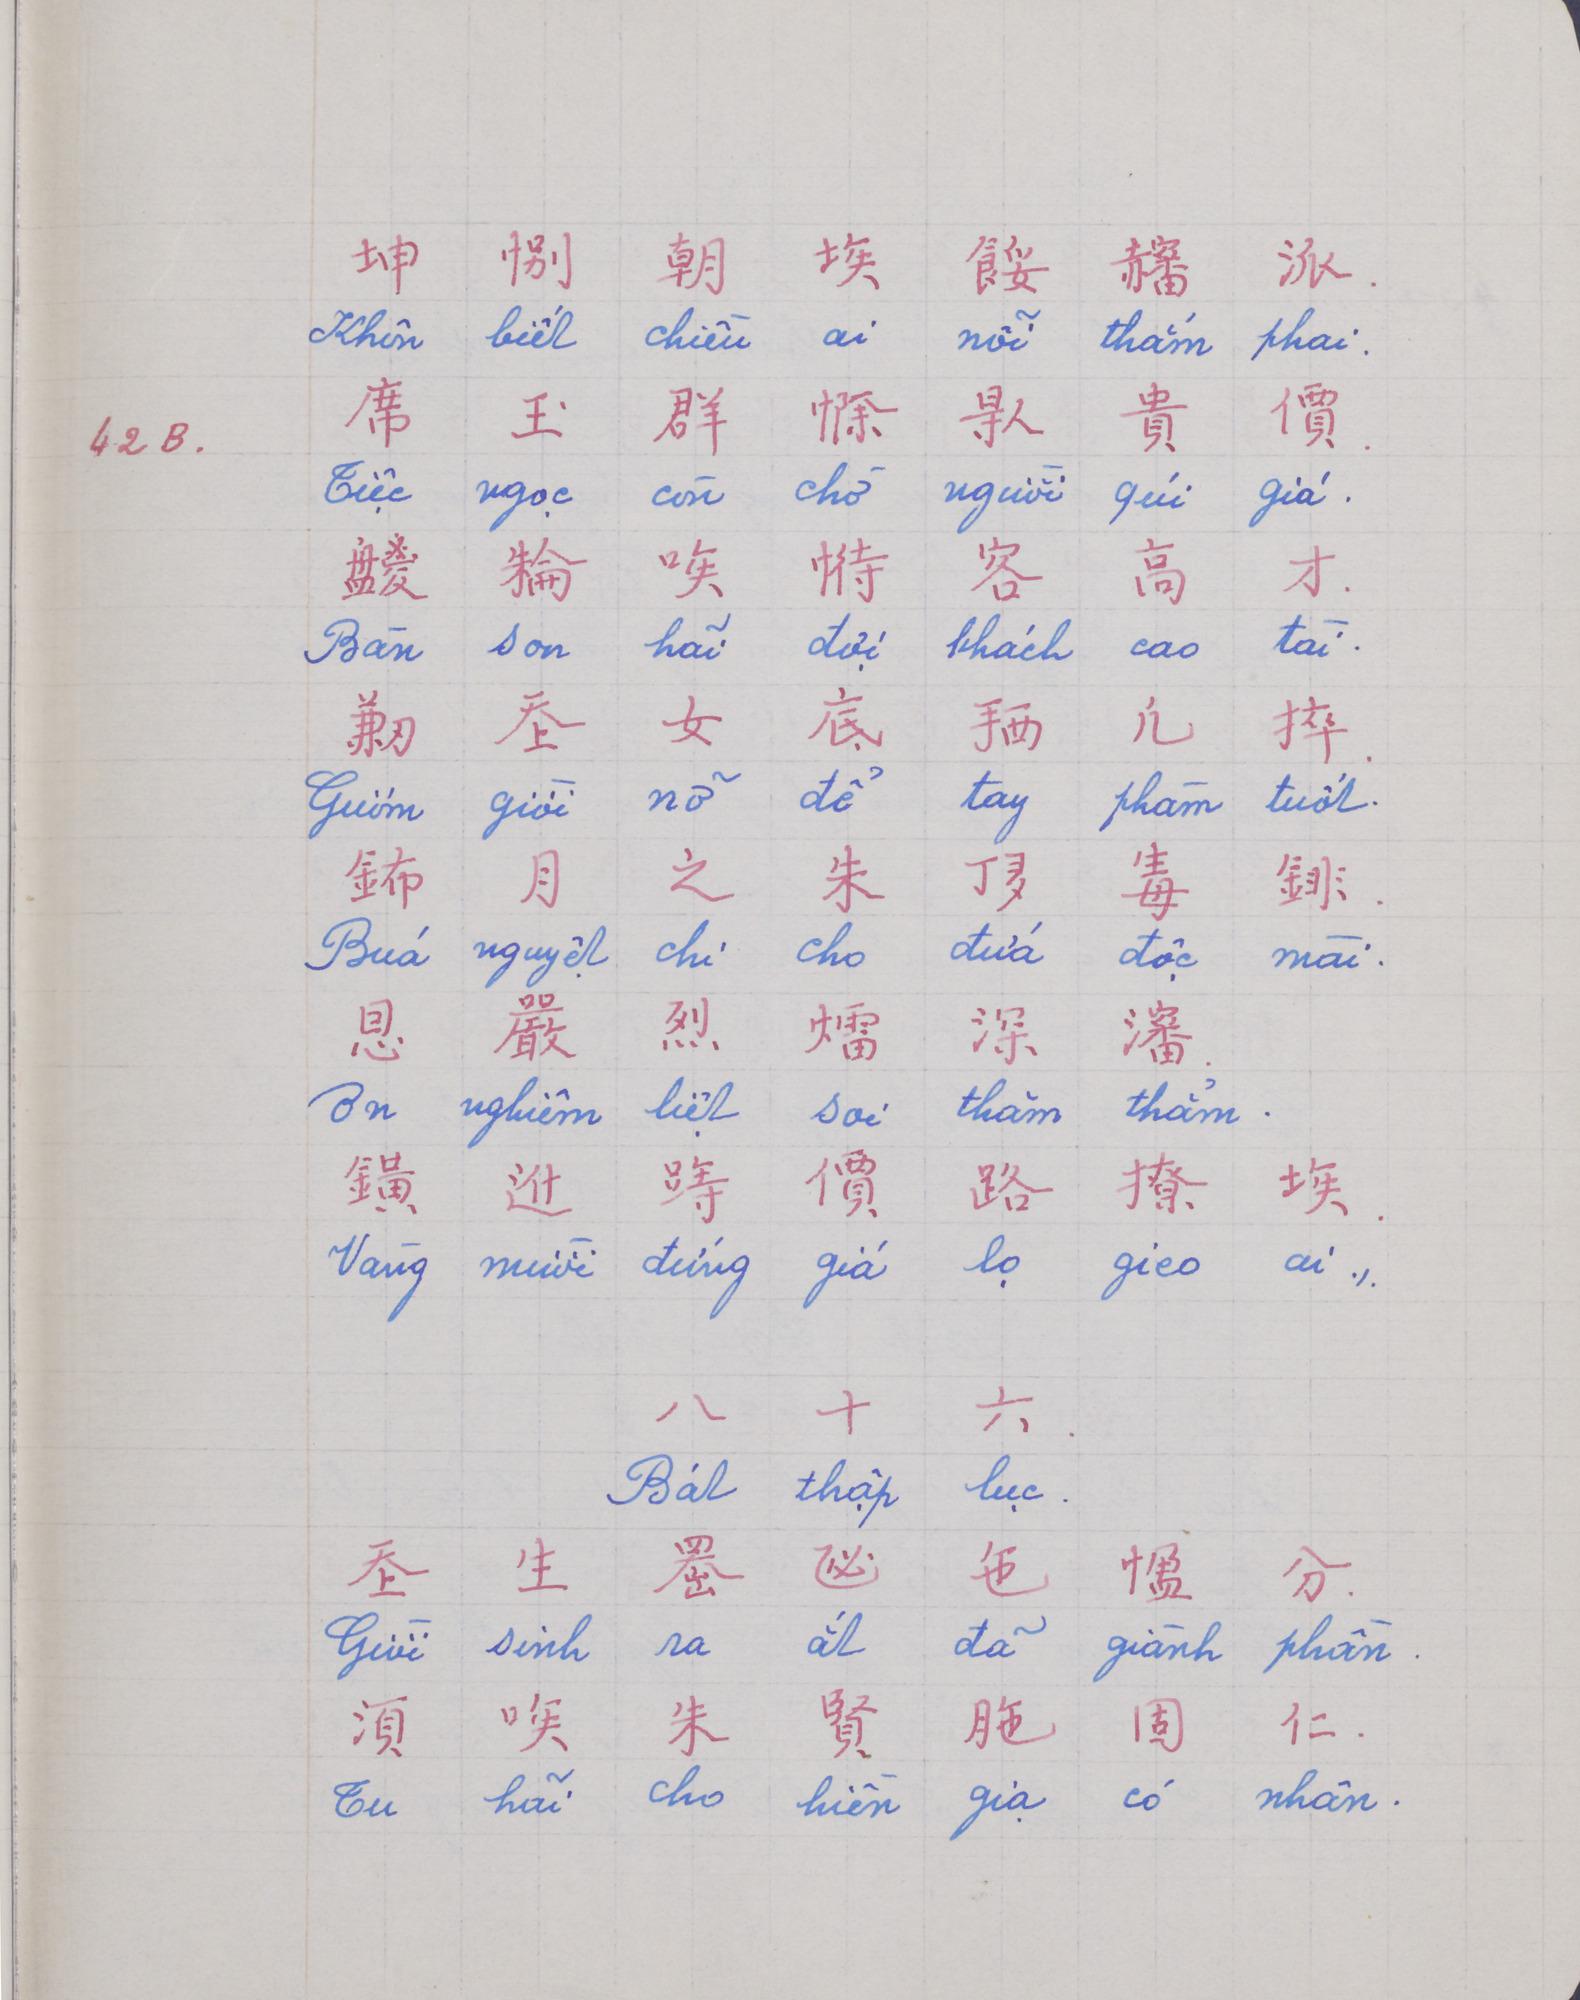 坤 恻 朝 埃 餒 𧹿 派.
Khôn biết chiều ai nỗi thắm phai.
42B.
席 玉 群 㤕 𠊛 貴 價.
Tiệc ngọc còn chờ người quí giá.
盤 𣘃 唉 待 客 高 才.
Bàn son hãi đợi khách cao tài.
劎 𡗶 女 底 𢬣 凡 捽.
Gươm giời nỡ để tay phàm tuốt.
鈽 月 之 朱 𠀲 毒 𨨦.
Búa nguyệt chi cho đứa độc mài.
恩 嚴 烈 㷟 深 瀋.
Ơn nghiêm liệt soi thăm thẳm.
鐄 𨒒 𨅸 價 路 撩 埃.
Vàng mười đứng giá lọ gieo ai.,.
八 十 六.
Bát thập lục.
𡗶 生 𦋦 𠮿 㐌 𢢆 分.
Giời sinh ra ắt đã giành phần.
須 唉 朱 賢 𦙏 固 仁.
Tu hãi cho hiền giạ có nhân.